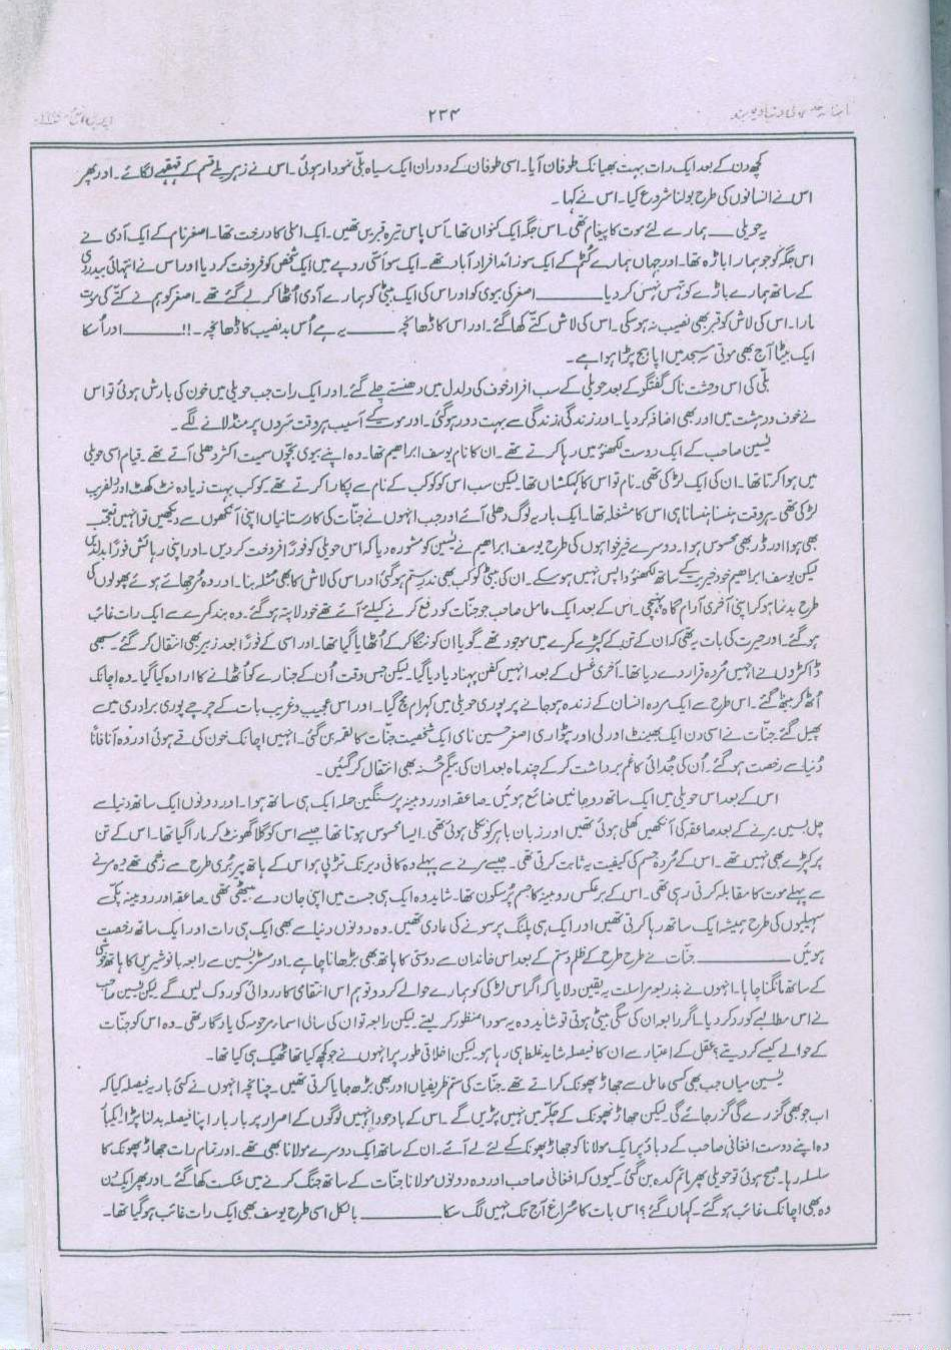 ۲۳۴
کچھ دن کے بعد ایک رات بہت بھیانک طوفان آیا۔ اسی طوفان کے دوران ایک سیاہ بلّی نمودار ہوئی۔ اس نے زہریلے قسم کے قہقہے لگائے۔ اور پھر
اس نے انسانوں کی طرح بولنا شروع کیا۔ اس نے کہا۔
یہ حویلی ـــــ ہمارے لئے موت کا پیغام تھی۔ اس جگہ ایک کنواں تھا۔ آس پاس تیرہ قبریں تھیں۔ ایک املی کا درخت تھا۔ اصغر نام کے ایک آدمی نے
اس جگہ کو جو ہمارا باڑہ تھا۔ اور جہاں ہمارے کُٹم کے ایک سو زائد افراد آباد تھے۔ ایک سو اسّی روپے میں ایک شخص کو فروخت کر دیا اور اس نے انتہائی بیدردی
کے ساتھ ہمارے باڑے کو تہس نہس کر دیا ـــــــــ اصغر کی بیوی کو اور اس کی ایک بیٹی کو ہمارے آدمی اُٹھا کر لے گئے تھے۔ اصغر کو ہم نے کتّے کی موت
مارا۔ اس کی لاش کو قبر بھی نصیب نہ ہو سکی۔ اس کی لاش کتّے کھا گئے۔ اور اس کا ڈھانچہ ـــــــ یہ ہے اُس بدنصیب کا ڈھانچہ۔!! ـــــــ اور اُسکا
ایک بیٹا آج بھی موتی مسجد میں اپاہج پڑا ہوا ہے۔
بلّی کی اس وحشت ناک گفتگو کے بعد حویلی کے سب افراد خوف کی دلدل میں دھنستے چلے گئے۔ اور ایک رات جب حویلی میں خون کی بارش ہوئی تو اس
نے خوف و دہشت میں اور بھی اضافہ کر دیا۔ اور زندگی، زندگی سے بہت دور ہو گئی۔ اور موت کے آسیب ہر وقت سَروں پر منڈلانے لگے۔
یٰسین صاحب کے ایک دوست لکھنؤ میں رہا کرتے تھے۔ ان کا نام یوسف ابراہیم تھا۔ وہ اپنے بیوی بچّوں سمیت اکثر دھلی آتے تھے۔ قیام اسی حویلی
میں ہوا کرتا تھا۔ ان کی ایک لڑکی تھی۔ نام تو اس کا کہکشاں تھا لیکن سب اس کو کوکب کے نام سے پکارا کرتے تھے۔ کوکب بہت زیادہ نٹ کھٹ اور دلفریب
لڑکی تھی۔ ہر وقت ہنسنا ہنسانا ہی اس کا مشغلہ تھا۔ ایک بار یہ لوگ دھلی آئے اور جب انہوں نے جنّات کی کارستانیاں اپنی آنکھوں سے دیکھیں تو انہیں تعجب
بھی ہوا اور ڈر بھی محسوس ہوا۔ دوسرے خیر خواہوں کی طرح یوسف ابراہیم نے یٰسین کو مشورہ دیا کہ اس حویلی کو فوراً فروخت کر دیں۔ اور اپنی رہائش فوراً بدل دی
لیکن یوسف ابراہیم خود خیریت کے ساتھ لکھنؤ واپس نہیں ہو سکے۔ ان کی بیٹی کوکب بھی نذرِ ستم ہو گئی اور اس کی لاش کا بھی مُثلہ بنا۔ اور وہ مُرجھائے ہوئے پھولوں کی
طرح بدنما ہو کر اپنی آخری آرام گاہ پہنچی۔ اس کے بعد ایک عامل صاحب جو جنّات کو دفع کرنے کیلئے آئے تھے خود لاپتہ ہو گئے۔ وہ بند کمرے سے ایک رات غائب
ہو گئے۔ اور حیرت کی بات یہ تھی کہ ان کے تن کے کپڑے کمرے میں موجود تھے۔ گویا ان کو ننگا کر کے اُٹھایا گیا تھا۔ اور اسی کے فوراً بعد زبیر بھی انتقال کر گئے۔ سبھی
ڈاکٹروں نے انہیں مُردہ قرار دے دیا تھا۔ آخری غسل کے بعد انہیں کفن پہنا دیا گیا۔ لیکن جس وقت اُن کے جنازے کو اُٹھانے کا ارادہ کیا گیا۔ وہ اچانک
اُٹھ کر بیٹھ گئے۔ اس طرح سے ایک مردہ انسان کے زندہ ہو جانے پر پوری حویلی میں کہرام مچ گیا۔ اور اس عجیب و غریب بات کے چرچے پوری برادری میں
پھیل گئے۔ جنّات نے اسی دن ایک بھینٹ اور لی اور پٹواری اصغر حسین نامی ایک شخصیت جنّات کا لقمہ بن گئی۔ انہیں اچانک خون کی قے ہوئی اور وہ آناً فاناً
دُنیا سے رخصت ہو گئے۔ اُن کی جُدائی کا غم برداشت کر کے چند ماہ بعد ان کی بیگم حُسنہ بھی انتقال کر گئیں۔
اس کے بعد اس حویلی میں ایک ساتھ دو جانیں ضائع ہوئیں۔ صاعقہ اور روبینہ پر سنگین حملہ ایک ہی ساتھ ہوا۔ اور دونوں ایک ساتھ دنیا سے
چل بسیں۔ مرنے کے بعد صاعقہ کی آنکھیں کھلی ہوئی تھیں اور زبان باہر کو نکلی ہوئی تھی۔ ایسا محسوس ہوتا تھا جیسے اس کو گلا گھونٹ کر مارا گیا تھا۔ اس کے تن
پر کپڑے بھی نہیں تھے۔ اس کے مُردہ جسم کی کیفیت یہ ثابت کرتی تھی۔ جیسے مرنے سے پہلے وہ کافی دیر تک تڑپی ہو اس کے ہاتھ پیر بُری طرح سے زخمی تھے وہ مرنے
سے پہلے موت کا مقابلہ کرتی رہی تھی۔ اس کے برعکس روبینہ کا جسم پُرسکون تھا۔ شاید وہ ایک ہی جست میں اپنی جان دے بیٹھی تھی۔ صاعقہ اور روبینہ پکّی
سہیلیوں کی طرح ہمیشہ ایک ساتھ رہا کرتی تھیں اور ایک ہی پلنگ پر سونے کی عادی تھیں۔ وہ دونوں دنیا سے بھی ایک ہی رات اور ایک ساتھ رخصت
ہوئیں ـــــــــ جنّات نے طرح طرح کے ظلم و ستم کے بعد اس خاندان سے دوستی کا ہاتھ بھی بڑھانا چاہے۔ اور مسٹر یٰسین سے رابعہ بانو شیریں کا ہاتھ خوشی
کے ساتھ مانگنا چاہا۔ انہوں نے بذریعہ مراسلت یہ یقین دلایا کہ اگر اس لڑکی کو ہمارے حوالے کر دو تو ہم اس انتقامی کارروائی کو روک لیں گے لیکن یٰسین صاحب
نے اس مطالبے کو رد کر دیا۔ اگر رابعہ ان کی سگی بیٹی ہوتی تو شاید وہ یہ سودا منظور کر لیتے۔ لیکن رابعہ تو ان کی سالی اسماء مرحومہ کی یادگار تھی۔ وہ اس کو جنّات
کے حوالے کیسے کر دیتے؟ عقل کے اعتبار سے ان کا فیصلہ شاید غلط ہی رہا ہو لیکن اخلاقی طور پر انہوں نے جو کچھ کیا تھا ٹھیک ہی کیا تھا۔
یٰسین میاں جب بھی کسی عامل سے جھاڑ پھونک کراتے تھے۔ جنّات کی ستم ظریفیاں اور بھی بڑھ جایا کرتی تھیں۔ چنانچہ انہوں نے کئی بار یہ فیصلہ کیا کہ
اب جو بھی گزرے گی گزر جائے گی۔ لیکن جھاڑ پھونک کے چکّر میں نہیں پڑیں گے۔ اس کے باوجود انہیں لوگوں کے اصرار پر بار بار اپنا فیصلہ بدلنا پڑا! ایک بار
وہ اپنے دوست افغانی صاحب کے دباؤ پر ایک مولانا کو جھاڑ پھونک کے لئے لے آئے۔ ان کے ساتھ ایک دوسرے مولانا بھی تھے۔ اور تمام رات جھاڑ پھونک کا
سلسلہ رہا۔ صبح ہوئی تو حویلی پھر ماتم کدہ بن گئی۔ کیوں کہ افغانی صاحب اور وہ دونوں مولانا جنّات کے ساتھ جنگ کرنے میں شکست کھا گئے۔ اور پھر ایک دن
وہ بھی اچانک غائب ہو گئے۔ کہاں گئے؟ اس بات کا سُراغ آج تک نہیں لگ سکا ـــــــــ بالکل اسی طرح یوسف بھی ایک رات غائب ہو گیا تھا۔